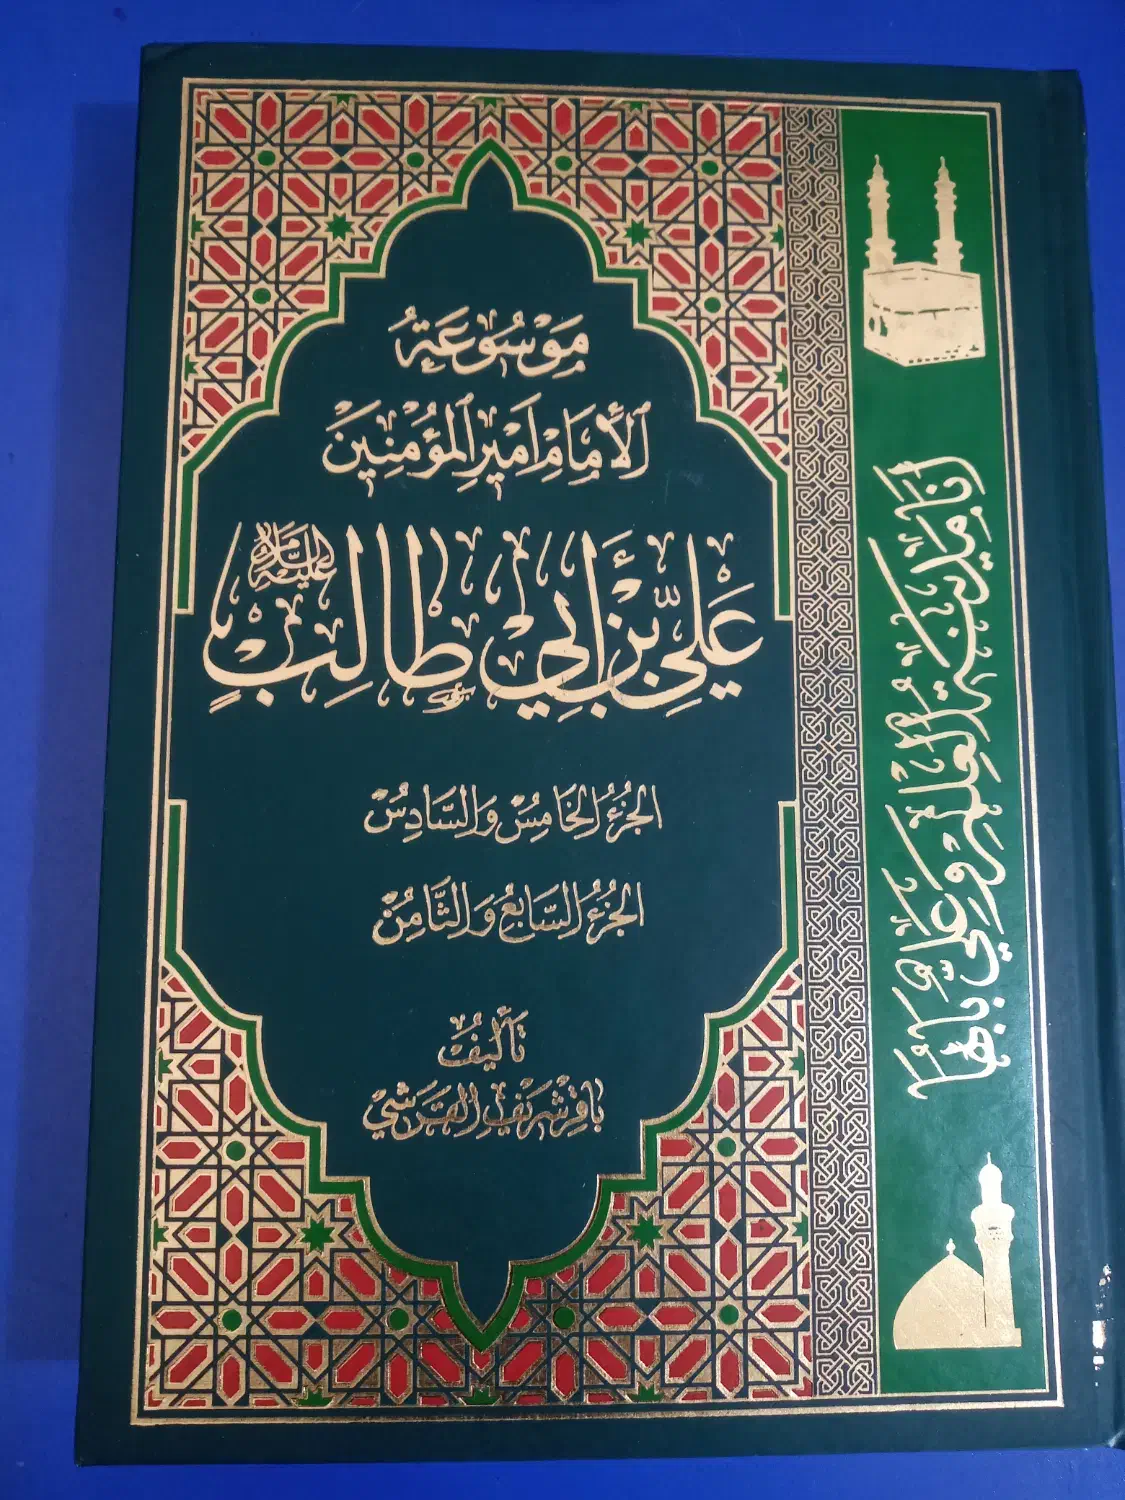 مَوْسُوعَةُ
الإِمَامِ أَمِيرِ المُؤْمِنِينَ
عَلِيِّ بْنِ أَبِي طَالِبٍ عليه السلام
الجُزْءُ الخَامِسُ وَالسَّادِسُ
الجُزْءُ السَّابِعُ وَالثَّامِنُ
تَأْلِيفُ
بَاقِر شَرِيف القَرَشِيّ
أَنَا مَدِينَةُ العِلْمِ وَعَلِيٌّ بَابُهَا